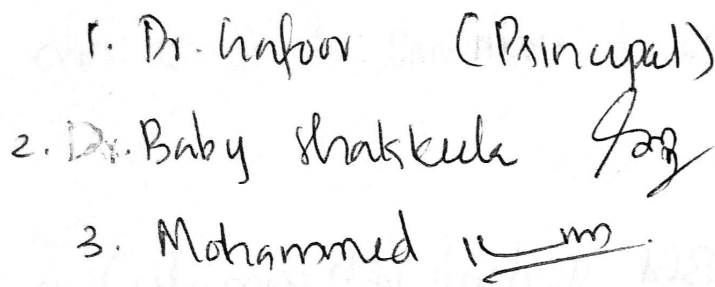 1. Dr. Gafoor (Principal)
2. Dr. Baby Shakkeela
3. Mohammed K